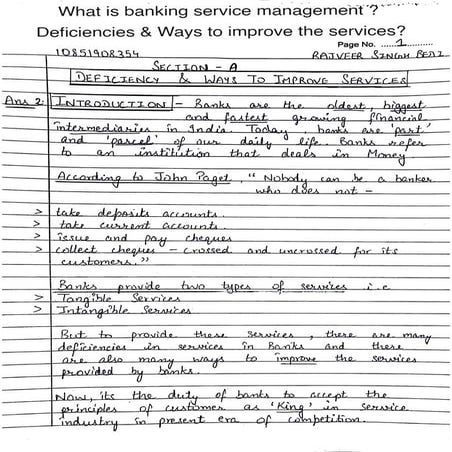 What is banking service management ?
Deficiencies & Ways to improve the services?
Page No. ....1....
10851908354
RAJVEER SINGH BEDI
SECTION - A
DEFICIENCY & WAYS TO IMPROVE SERVICES
Ans 2: INTRODUCTION - Banks are the oldest, biggest
and fastest growing financial
intermediaries in India. Today, banks are 'part'
and 'parcel' of our daily life. Banks refer
to an institution that deals in Money
According to John Paget, "Nobody can be a banker
who does not -
> take deposits accounts.
> take current accounts.
> issue and pay cheques
> collect cheques - crossed and uncrossed for its
customers."
Banks provide two types of services i.e
> Tangible Services
> Intangible Services
But to provide these services, there are many
deficiencies in services in Banks and there
are also many ways to improve the services
provided by banks.
Now, its the duty of banks to accept the
principles of customer as 'King' in service
industry in present era of competition.